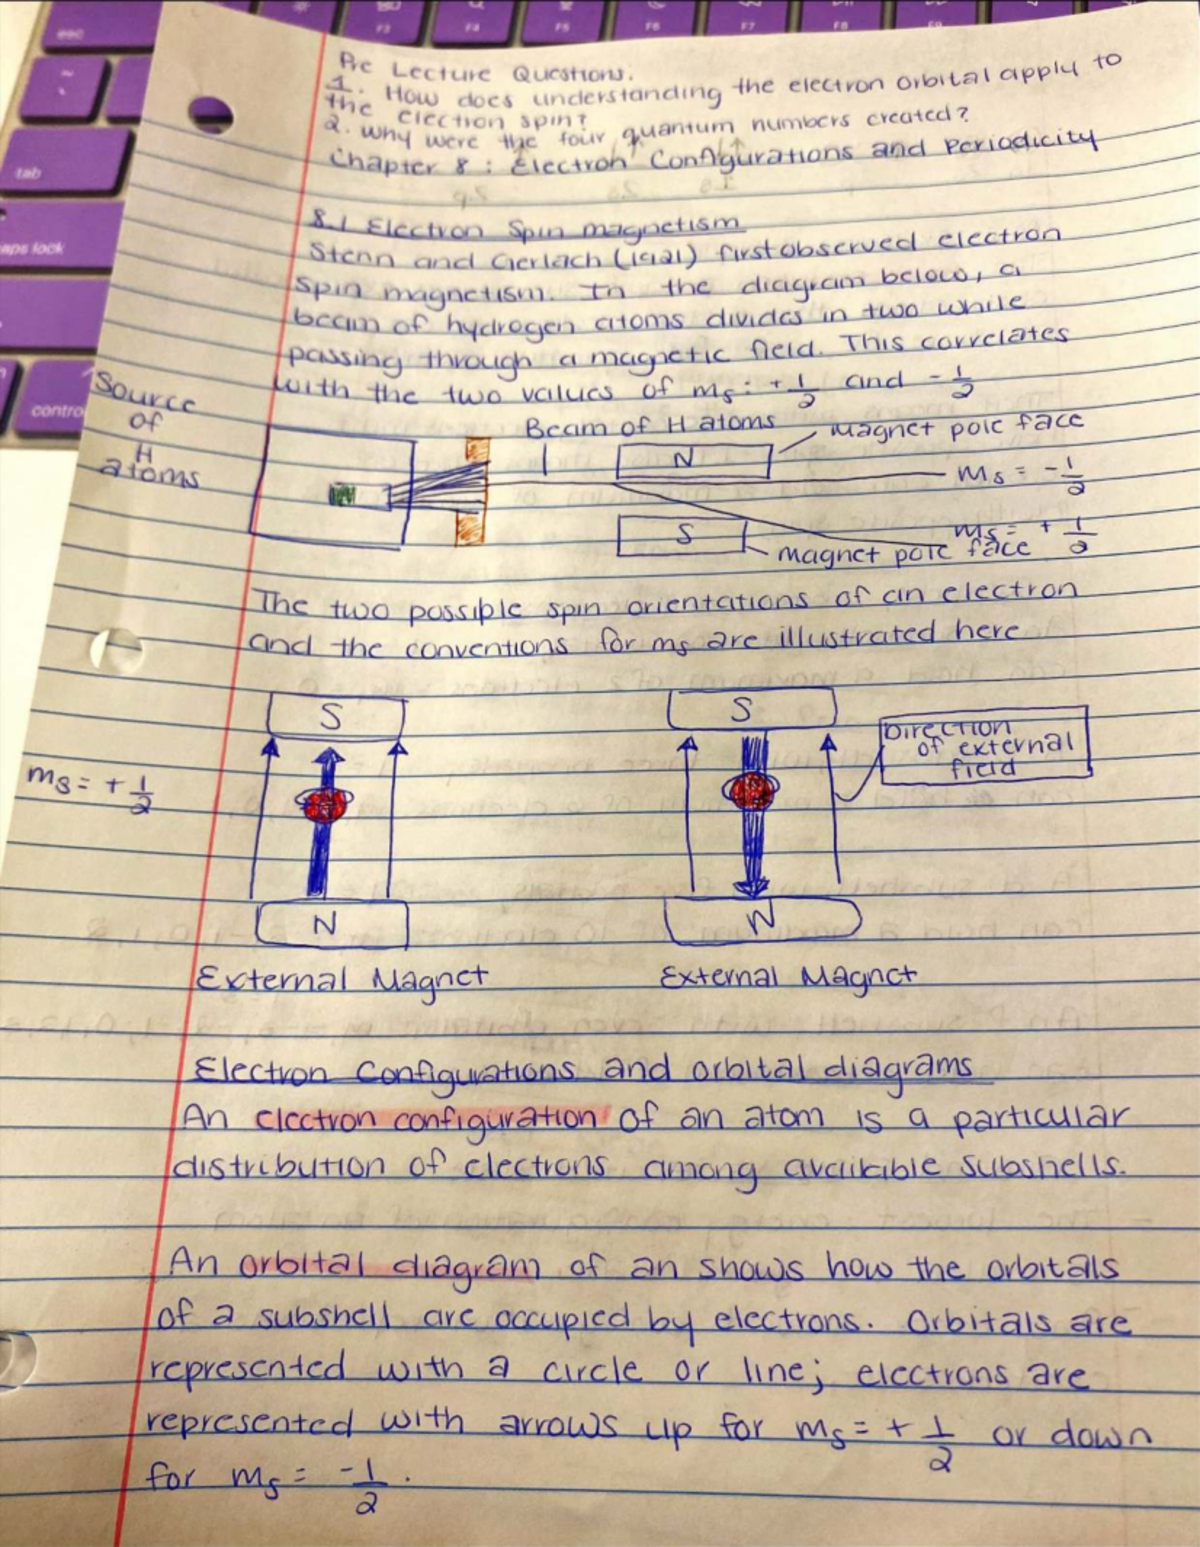 Pre Lecture Questions:
1. How does understanding the electron orbital apply to
the electron spin?
2. Why were the four quantum numbers created?
Chapter 8: Electron Configurations and Periodicity
8.1 Electron Spin magnetism
Stern and Gerlach (1921) first observed electron
spin magnetism. In the diagram below, a
beam of hydrogen atoms divides in two while
passing through a magnetic field. This correlates
with the two values of ms: +1/2 and -1/2
Source
of
H
atoms
Beam of H atoms
magnet pole face
N
ms = -1/2
S
ms = +1/2
magnet pole face
The two possible spin orientations of an electron
and the conventions for ms are illustrated here
S
S
Direction
of external
field
ms = +1/2
N
N
External Magnet
External Magnet
Electron Configurations and orbital diagrams
An electron configuration of an atom is a particular
distribution of electrons among available subshells.
An orbital diagram of an shows how the orbitals
of a subshell are occupied by electrons. Orbitals are
represented with a circle or line; electrons are
represented with arrows up for ms = +1/2 or down
for ms = -1/2.
esc
tab
caps lock
control
F3
F4
F5
F6
F7
F8
F9